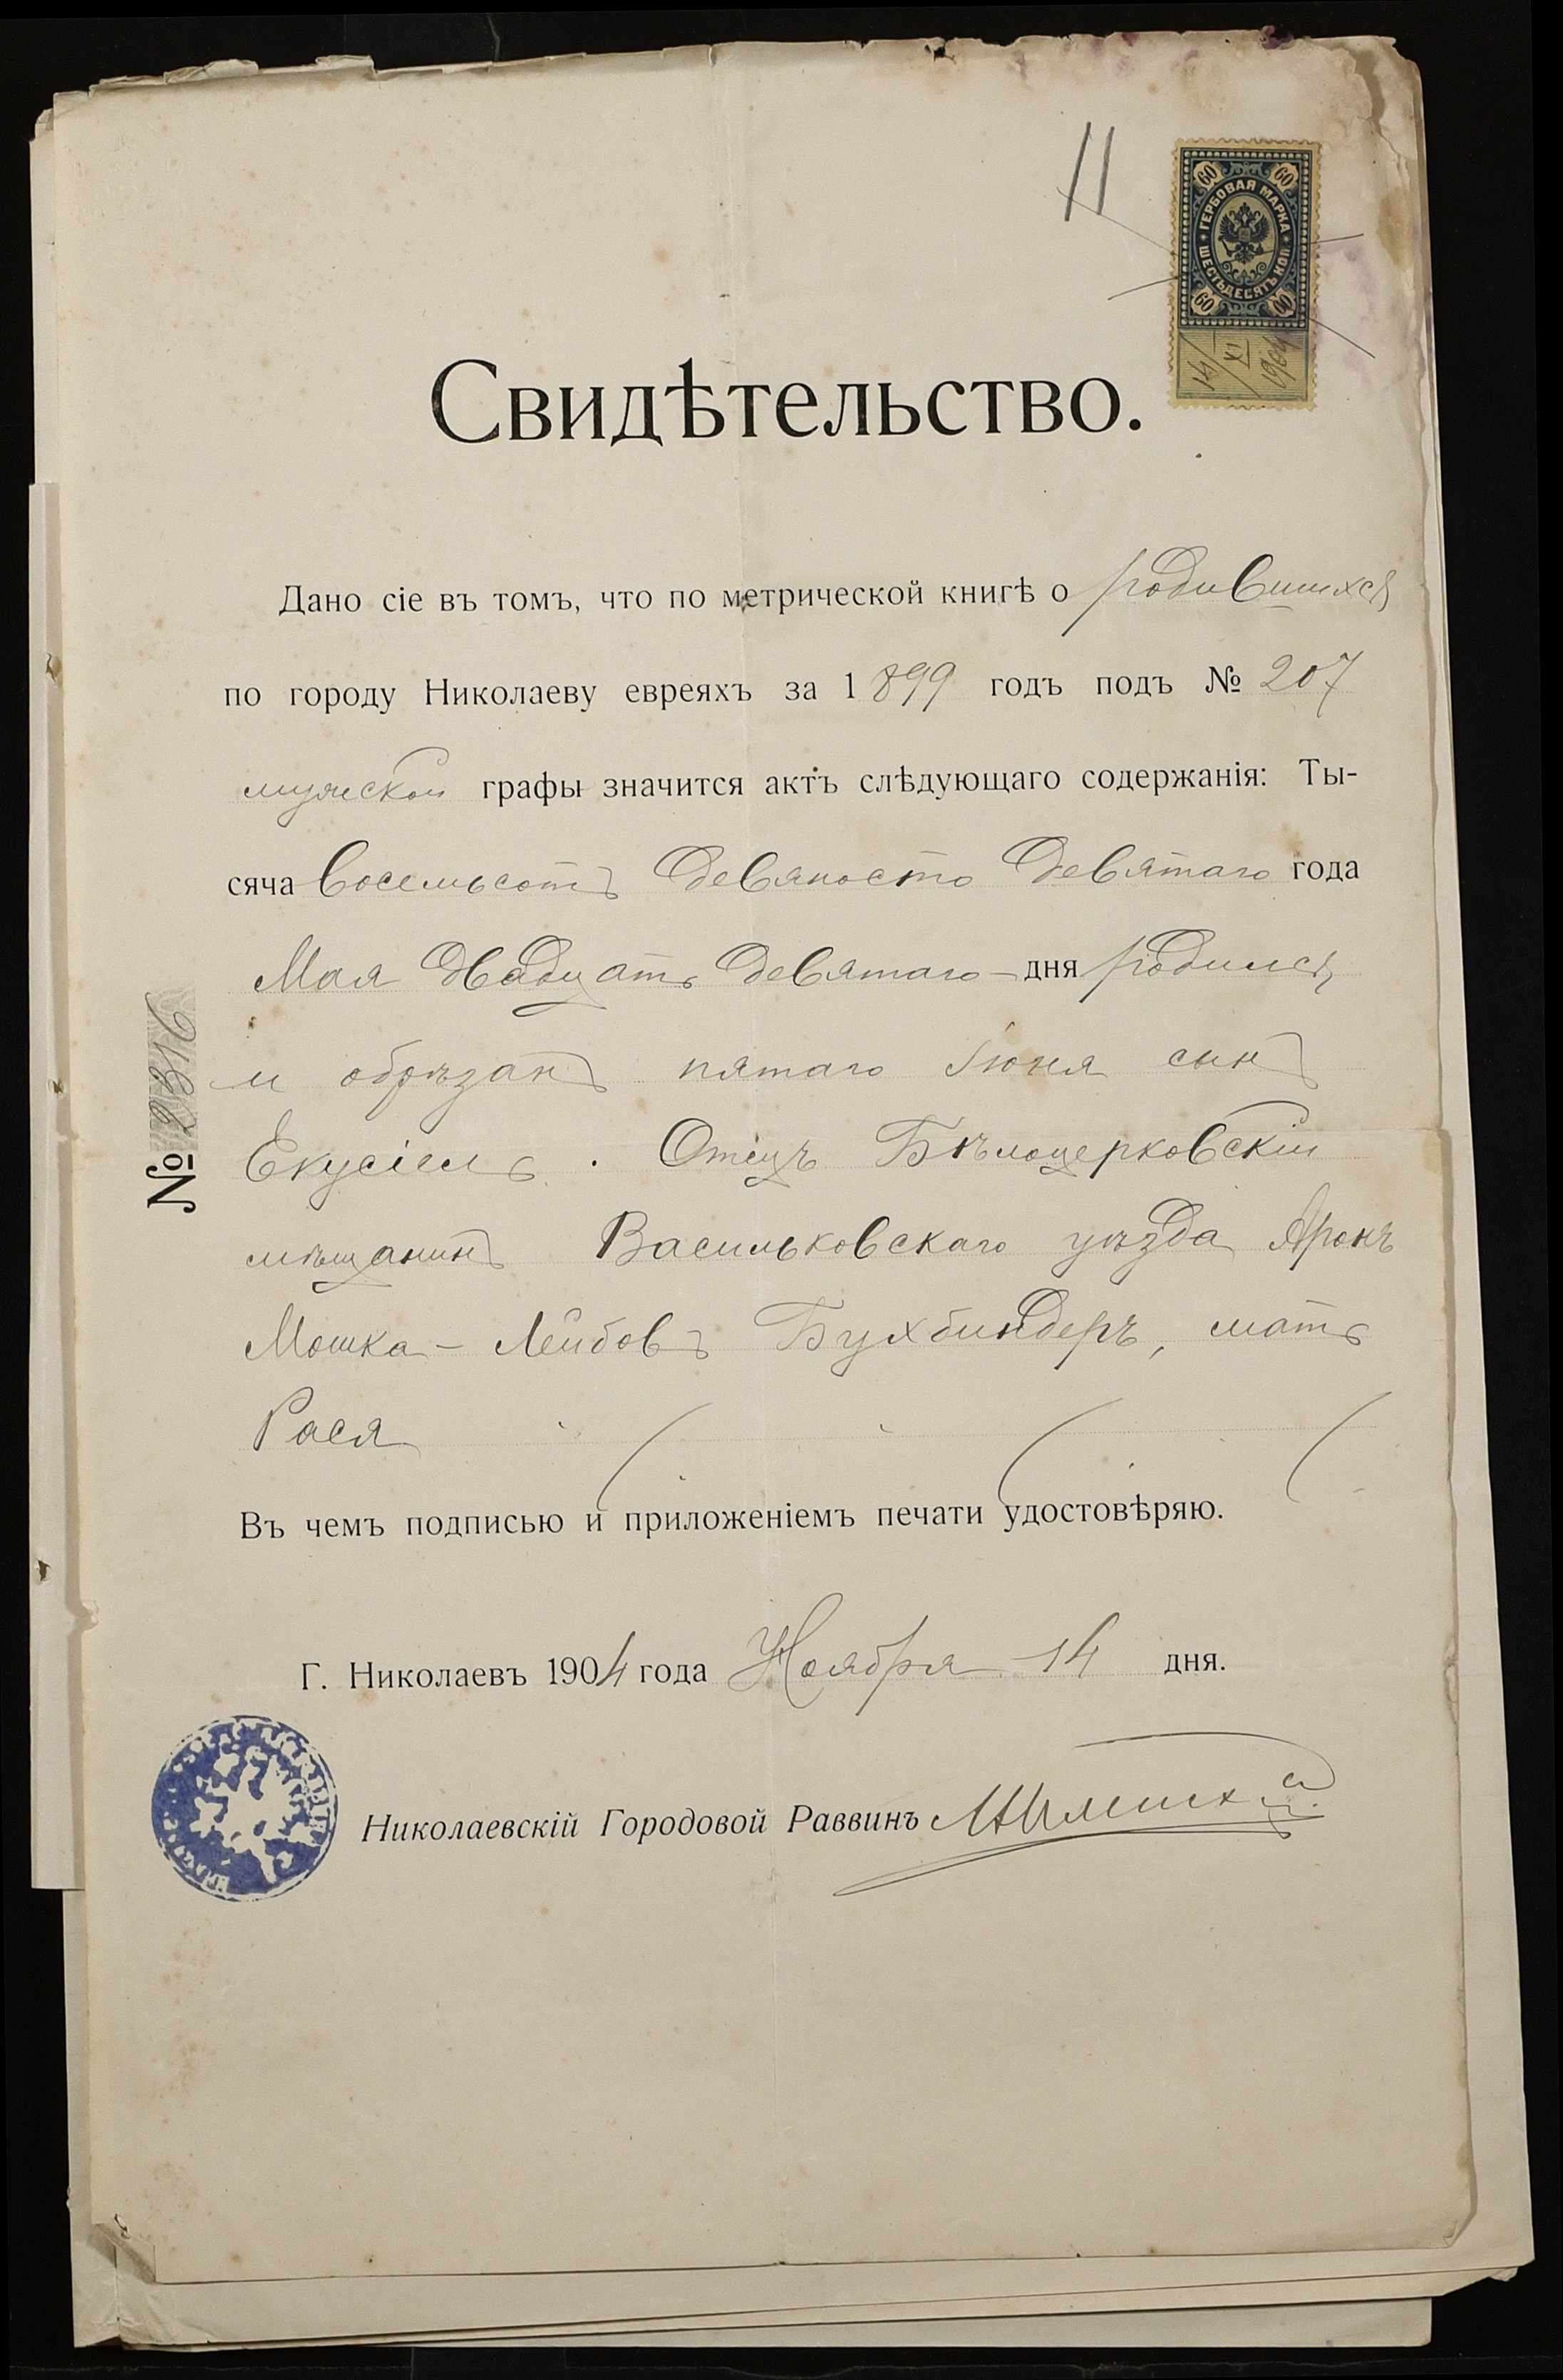 11
60 60
ГЕРБОВАЯ МАРКА
ШЕСТЬДЕСЯТЪ КОП.
60 60
14/XI 1904
Свидѣтельство.
Дано сіе въ томъ, что по метрической книгѣ о родившихся
по городу Николаеву евреяхъ за 1899 годъ подъ № 207
мужской графы значится актъ слѣдующаго содержанія: Ты-
сяча восемьсотъ девяносто девятаго года
Мая двадцать девятаго дня родился
и обрѣзанъ пятаго Іюня сынъ
Екусіель. Отецъ Бѣлоцерковскій
мѣщанинъ Васильковскаго уѣзда Аронъ
Мошка-Лейбовъ Бухбиндеръ, мать
Рася
№ 2316
Въ чемъ подписью и приложеніемъ печати удостовѣряю.
Г. Николаевъ 1904 года Ноября 14 дня.
Николаевскій Городовой Раввинъ